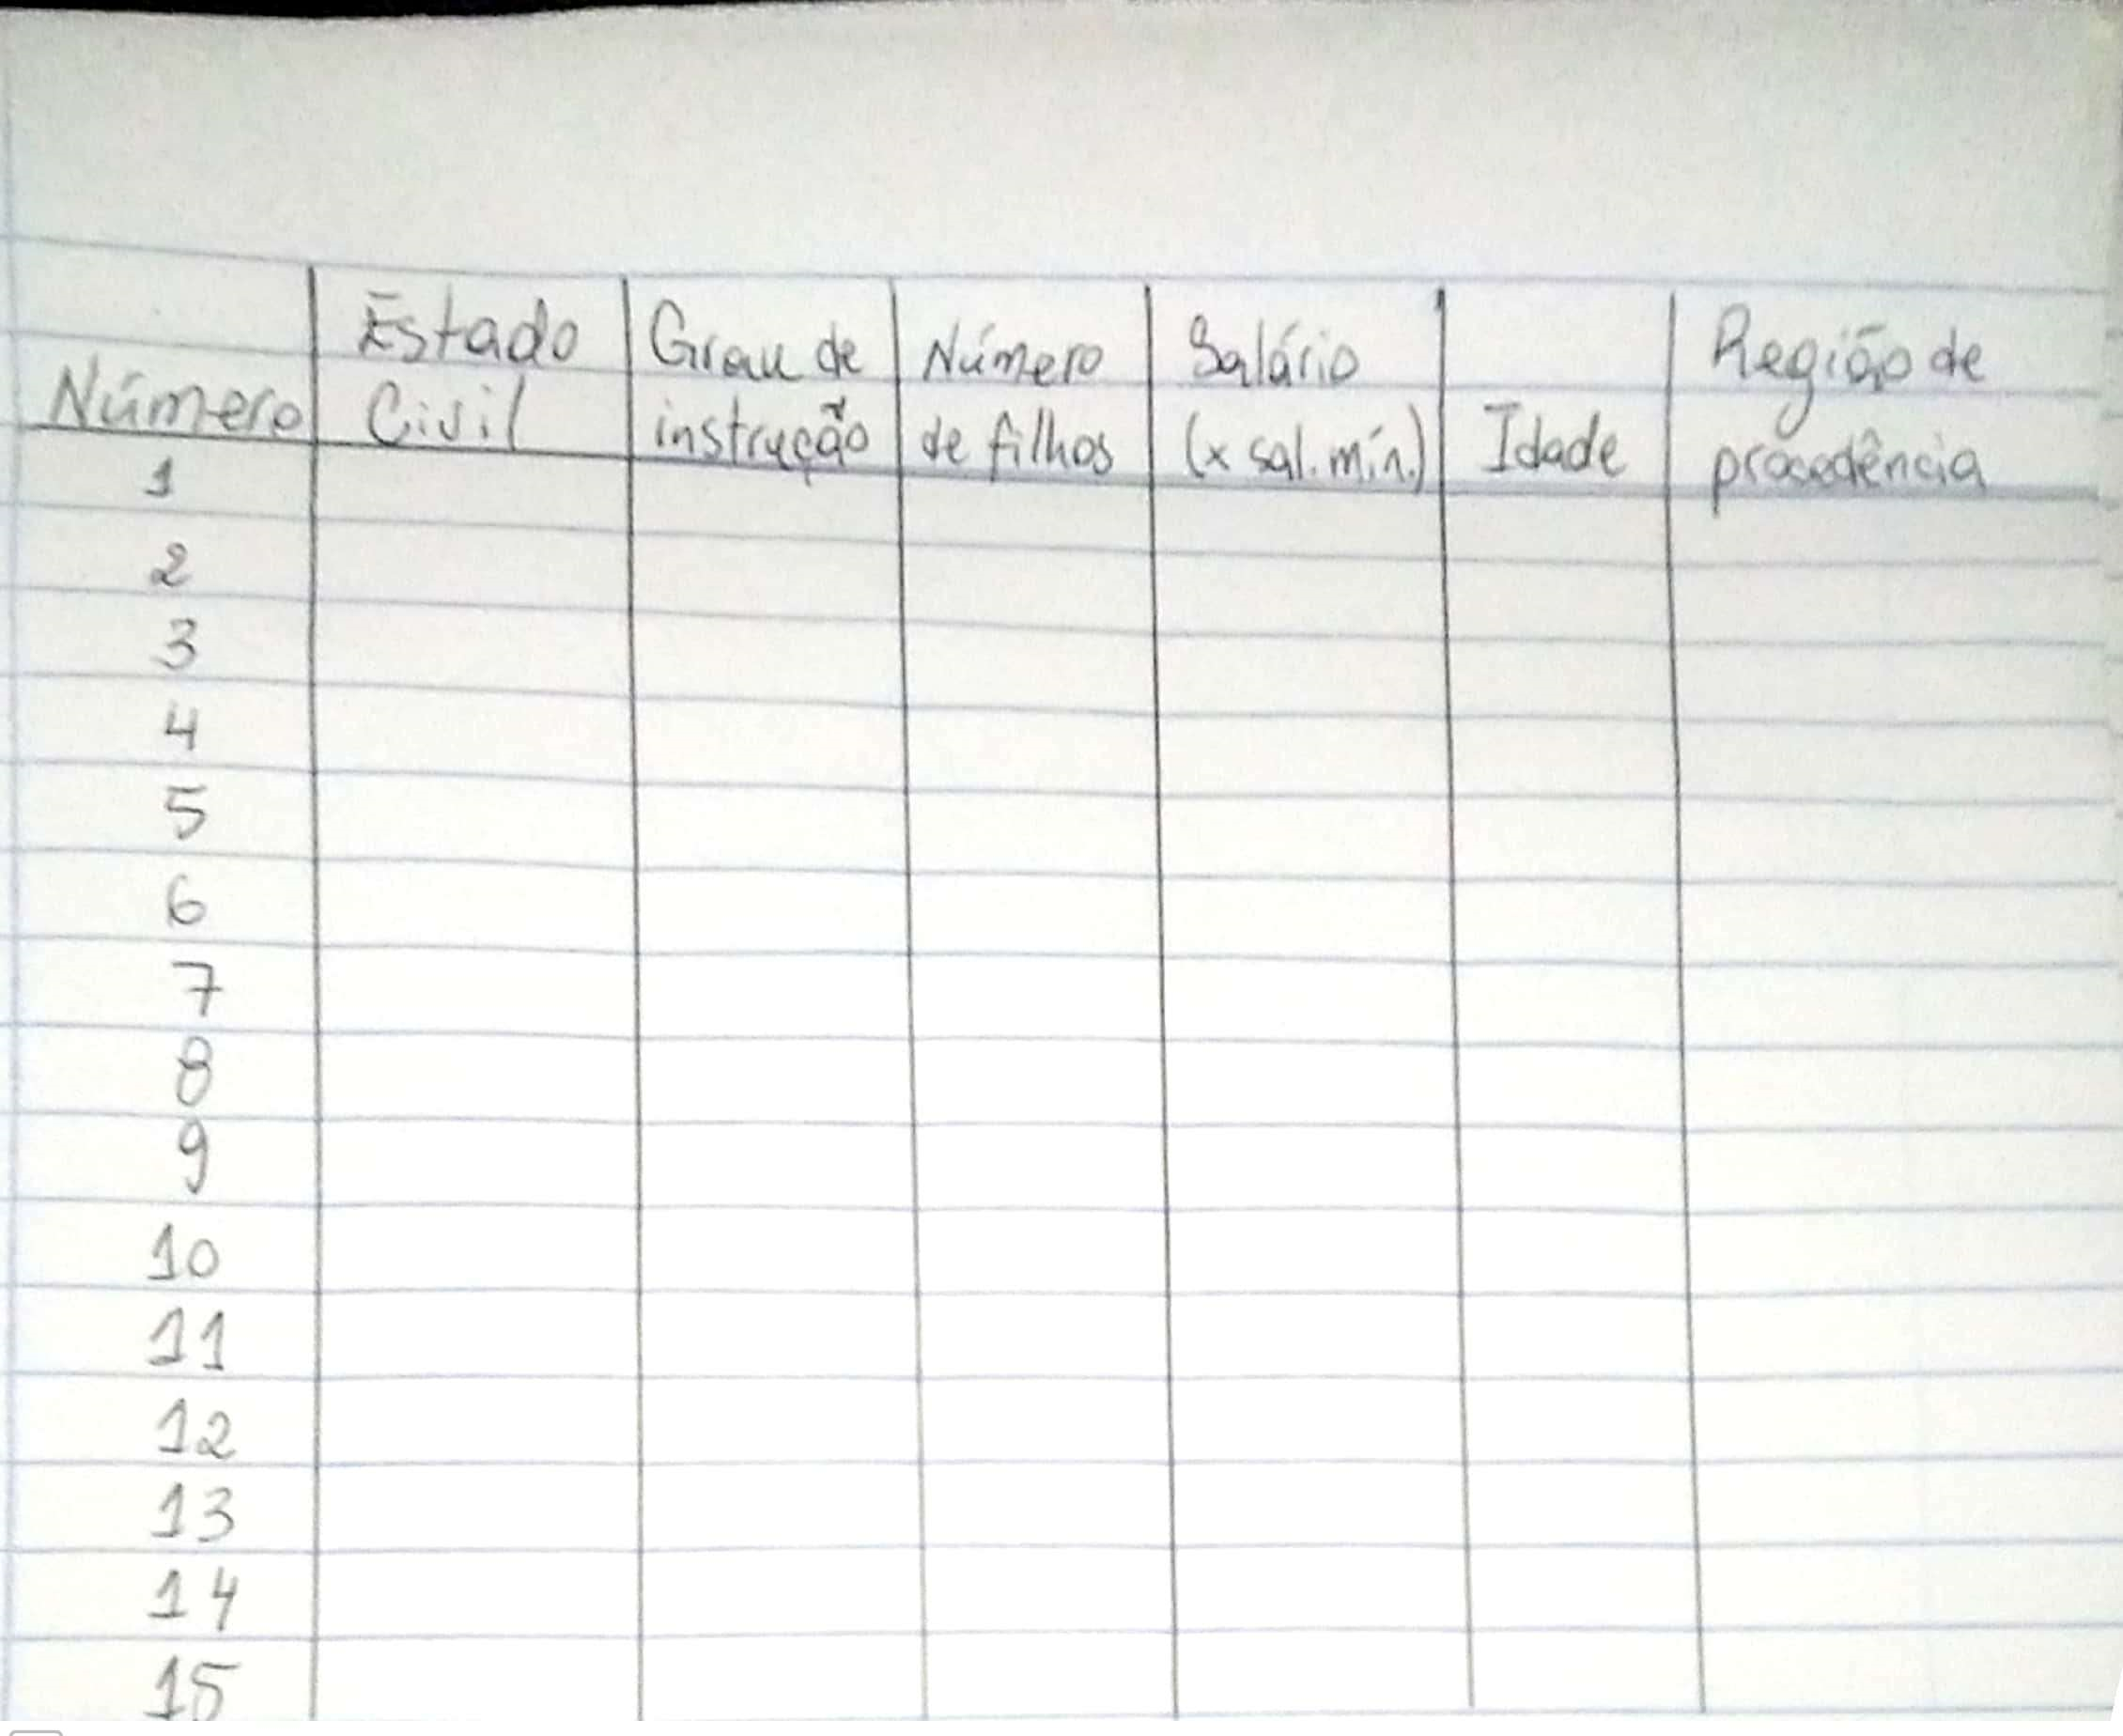 Número
Estado
Civil
Grau de
instrução
Número
de filhos
Salário
(x sal. mín.)
Idade
Região de
procedência
1
2
3
4
5
6
7
8
9
10
11
12
13
14
15